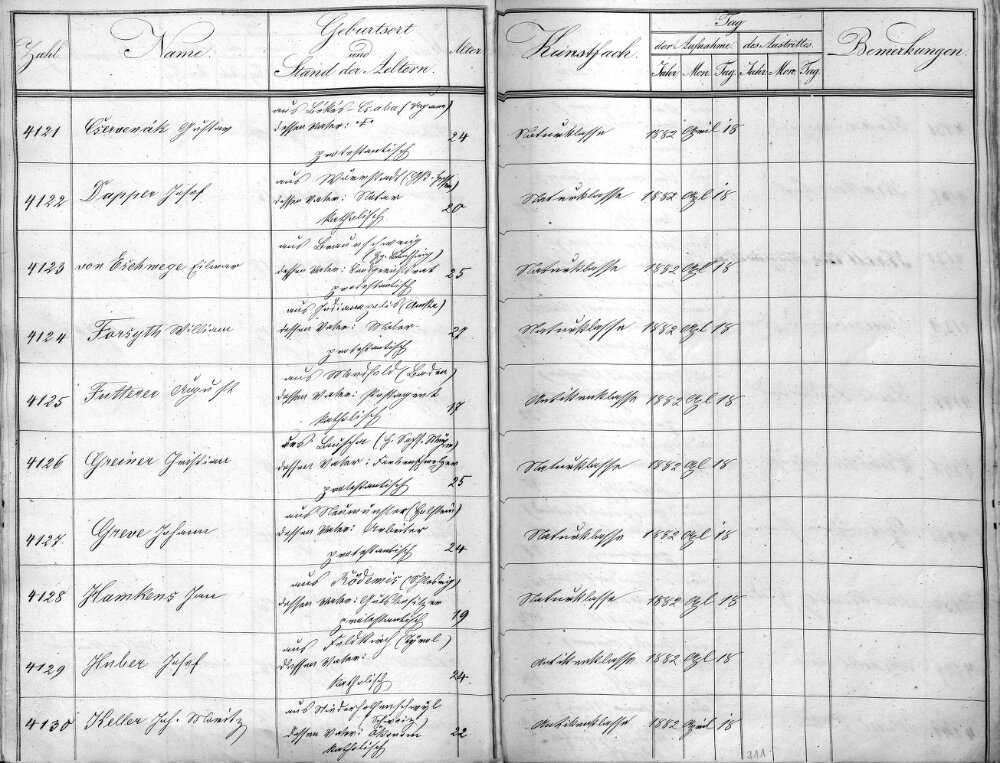 Zahl. Name. Geburtsort und Stand der Aeltern. Alter Kunstfach. Tag der Aufnahme. des Austrittes. Bemerkungen.
Jahr Mon. Tag. Jahr Mon. Tag.
aus Békés-Csaba (Ungarn)
4121 Cserverák Gustav dessen Vater: † 24 Naturklasse 1882 April 18
protestantisch
aus
4122 Dapper Josef dessen Vater: Notar 20 Naturklasse 1882 Apl 18
katholisch
aus Braunschweig
4123 von Eschwege Elmar dessen Vater: 25 Naturklasse 1882 Apl 18
protestantisch
aus Indianapolis
4124 Forsyth William dessen Vater: Maler 27 Naturklasse 1882 Apl 18
protestantisch
aus (Baden)
4125 Futterer August dessen Vater: Postagent 17 Antikenklasse 1882 Apl 18
katholisch
aus Lauscha
4126 Greiner Christian dessen Vater: 25 Naturklasse 1882 Apl 18
protestantisch
aus Neumünster (Holstein)
4127 Greve Johann dessen Vater: Arbeiter 24 Naturklasse 1882 Apl 18
protestantisch
aus Rödemis (Schleswig)
4128 Hamkens Jan dessen Vater: Gutsbesitzer 19 Naturklasse 1882 Apl 18
protestantisch
aus Feldkirch (Tyrol)
4129 Huber Josef dessen Vater: 24 Antikenklasse 1882 Apl 18
katholisch
aus Niederhelfenschwyl
(Schweiz)
4130 Keller Joh. Moritz dessen Vater: Oekonom 22 Antikenklasse 1882 April 18
katholisch
311